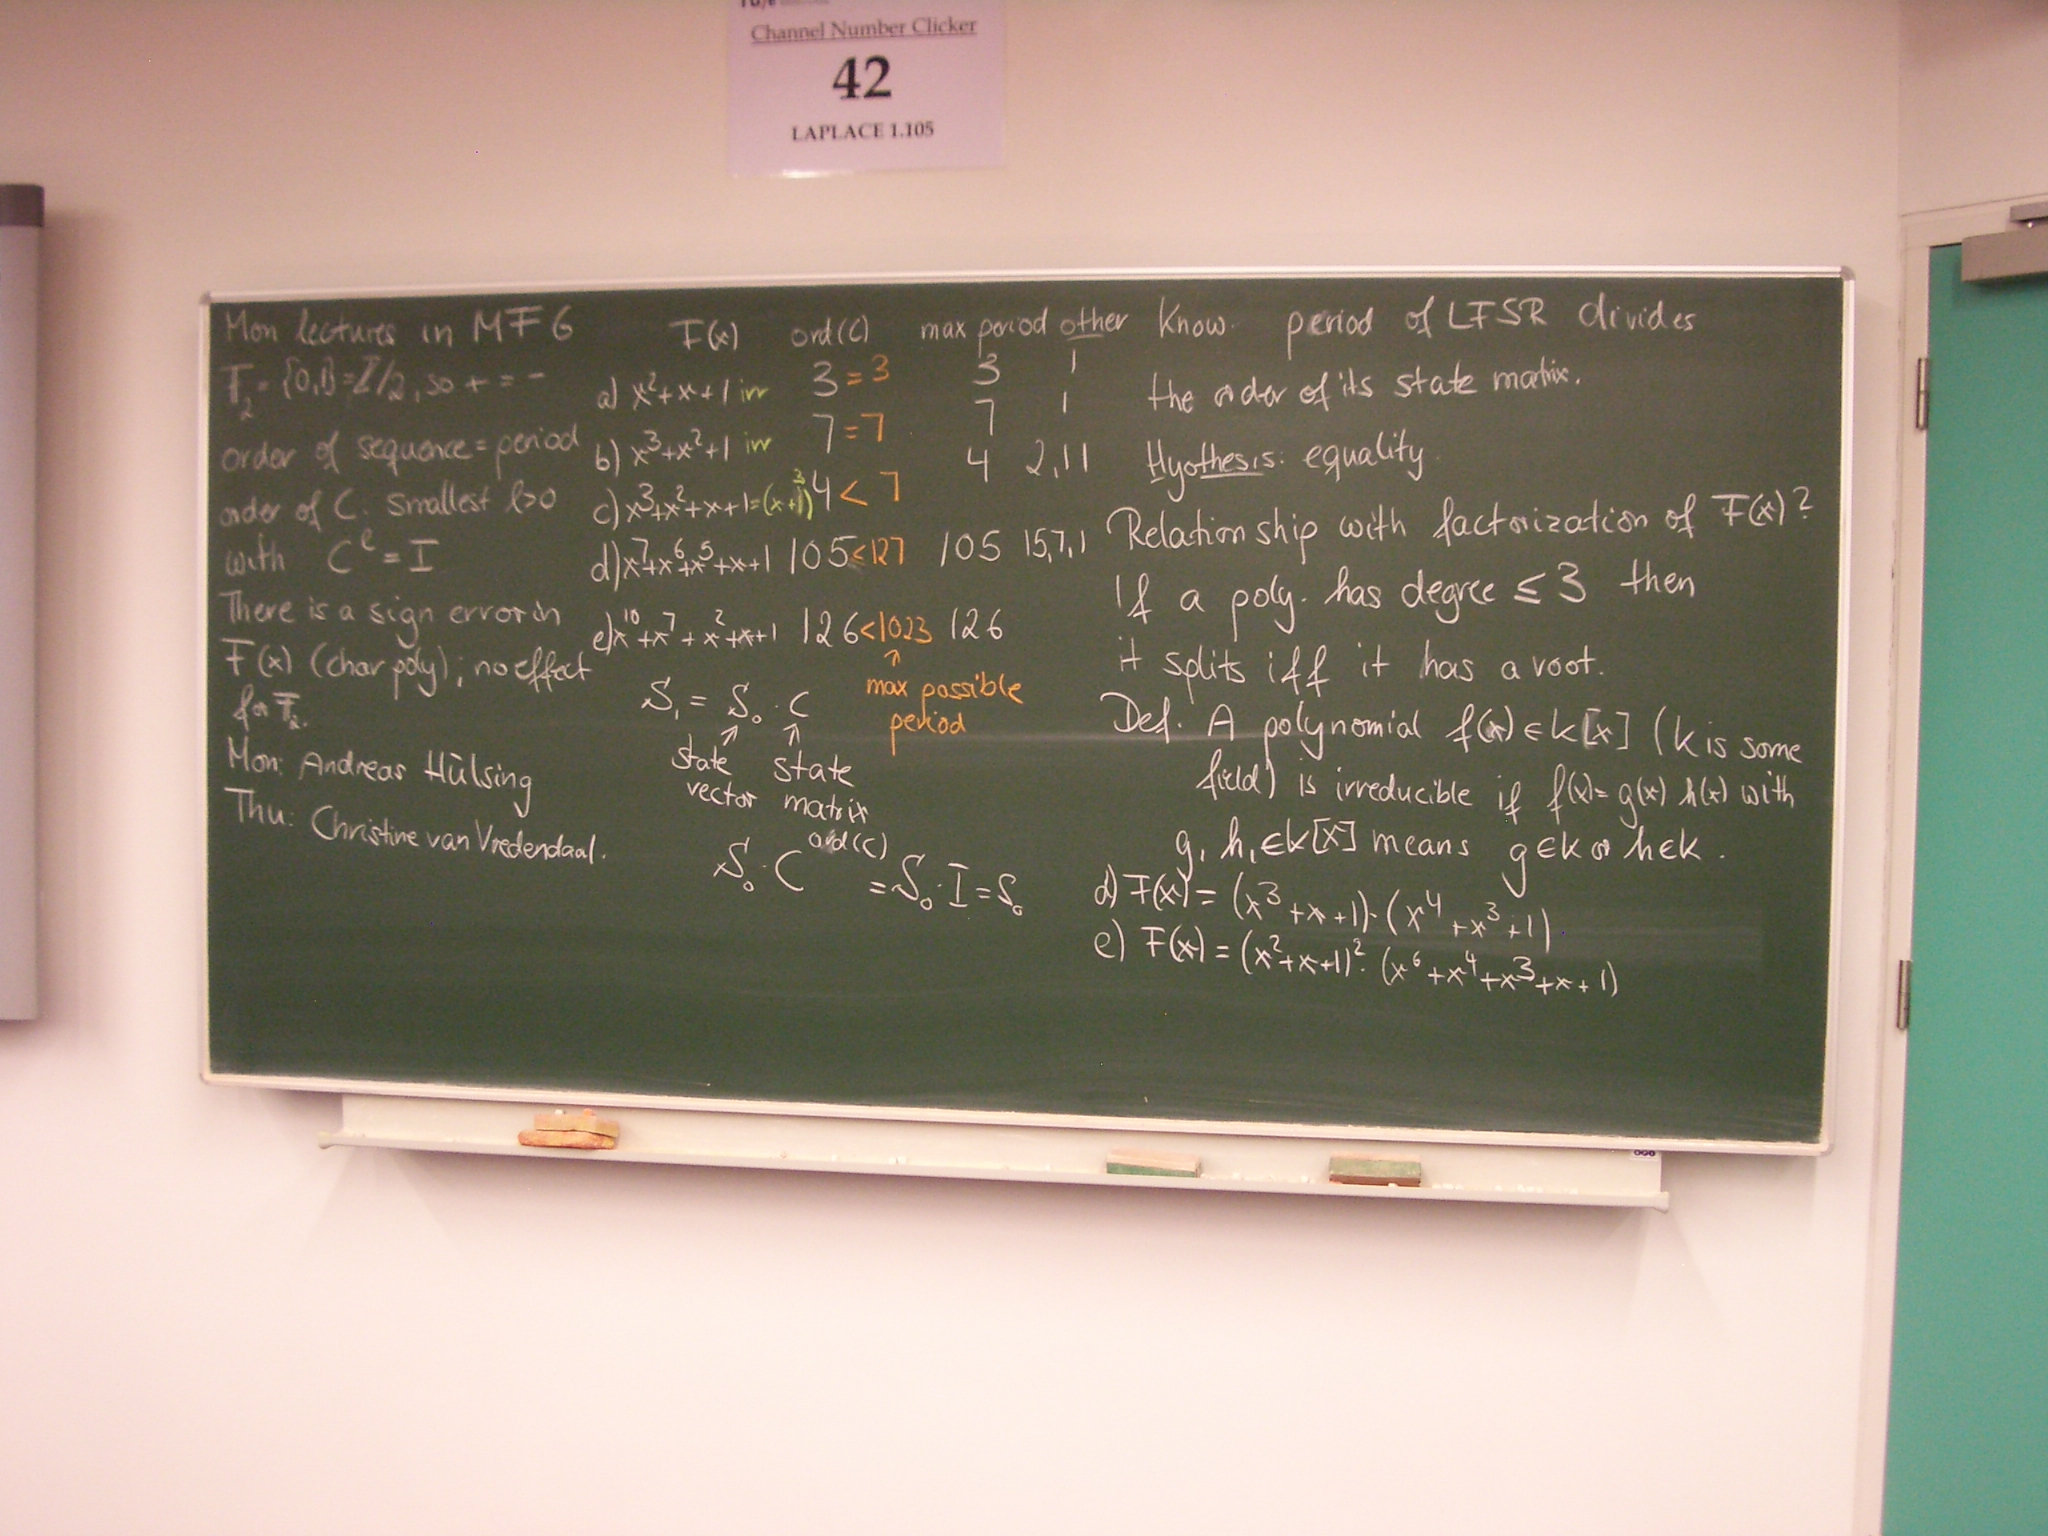 Channel Number Clicker
42
LAPLACE 1.105
Mon lectures in MF 6
F₂ = {0,1} = Z/2, so + = -
order of sequence = period
order of C. smallest l>0
with C^l = I
There is a sign error in
F(x) (char poly); no effect
for F₂.
Mon: Andreas Hülsing
Thu: Christine van Vredendaal.
F(x) ord(C) max period other
a) x²+x+1 irr 3 = 3 3 1
b) x³+x²+1 irr 7 = 7 7 1
c) x³+x²+x+1=(x+1)³ 4 < 7 4 2,1 1
d) x⁷+x⁶+x⁵+x+1 105 < 127 105 15,7,1
e) x¹⁰+x⁷+x²+x+1 126 < 1023 126
max possible
period
S₁ = S₀ · C
state state
vector matrix
S₀ · C^ord(C) = S₀ · I = S₀
Know. period of LFSR divides
the order of its state matrix.
Hyothesis: equality.
Relationship with factorization of F(x)?
If a poly. has degree ≤ 3 then
it splits iff it has a root.
Def. A polynomial f(x) ∈ k[x] (k is some
field) is irreducible if f(x) = g(x) h(x) with
g, h, ∈ k[x] means g∈k or h∈k.
d) F(x) = (x³+x+1)·(x⁴+x³+1)
e) F(x) = (x²+x+1)²·(x⁶+x⁴+x³+x+1)